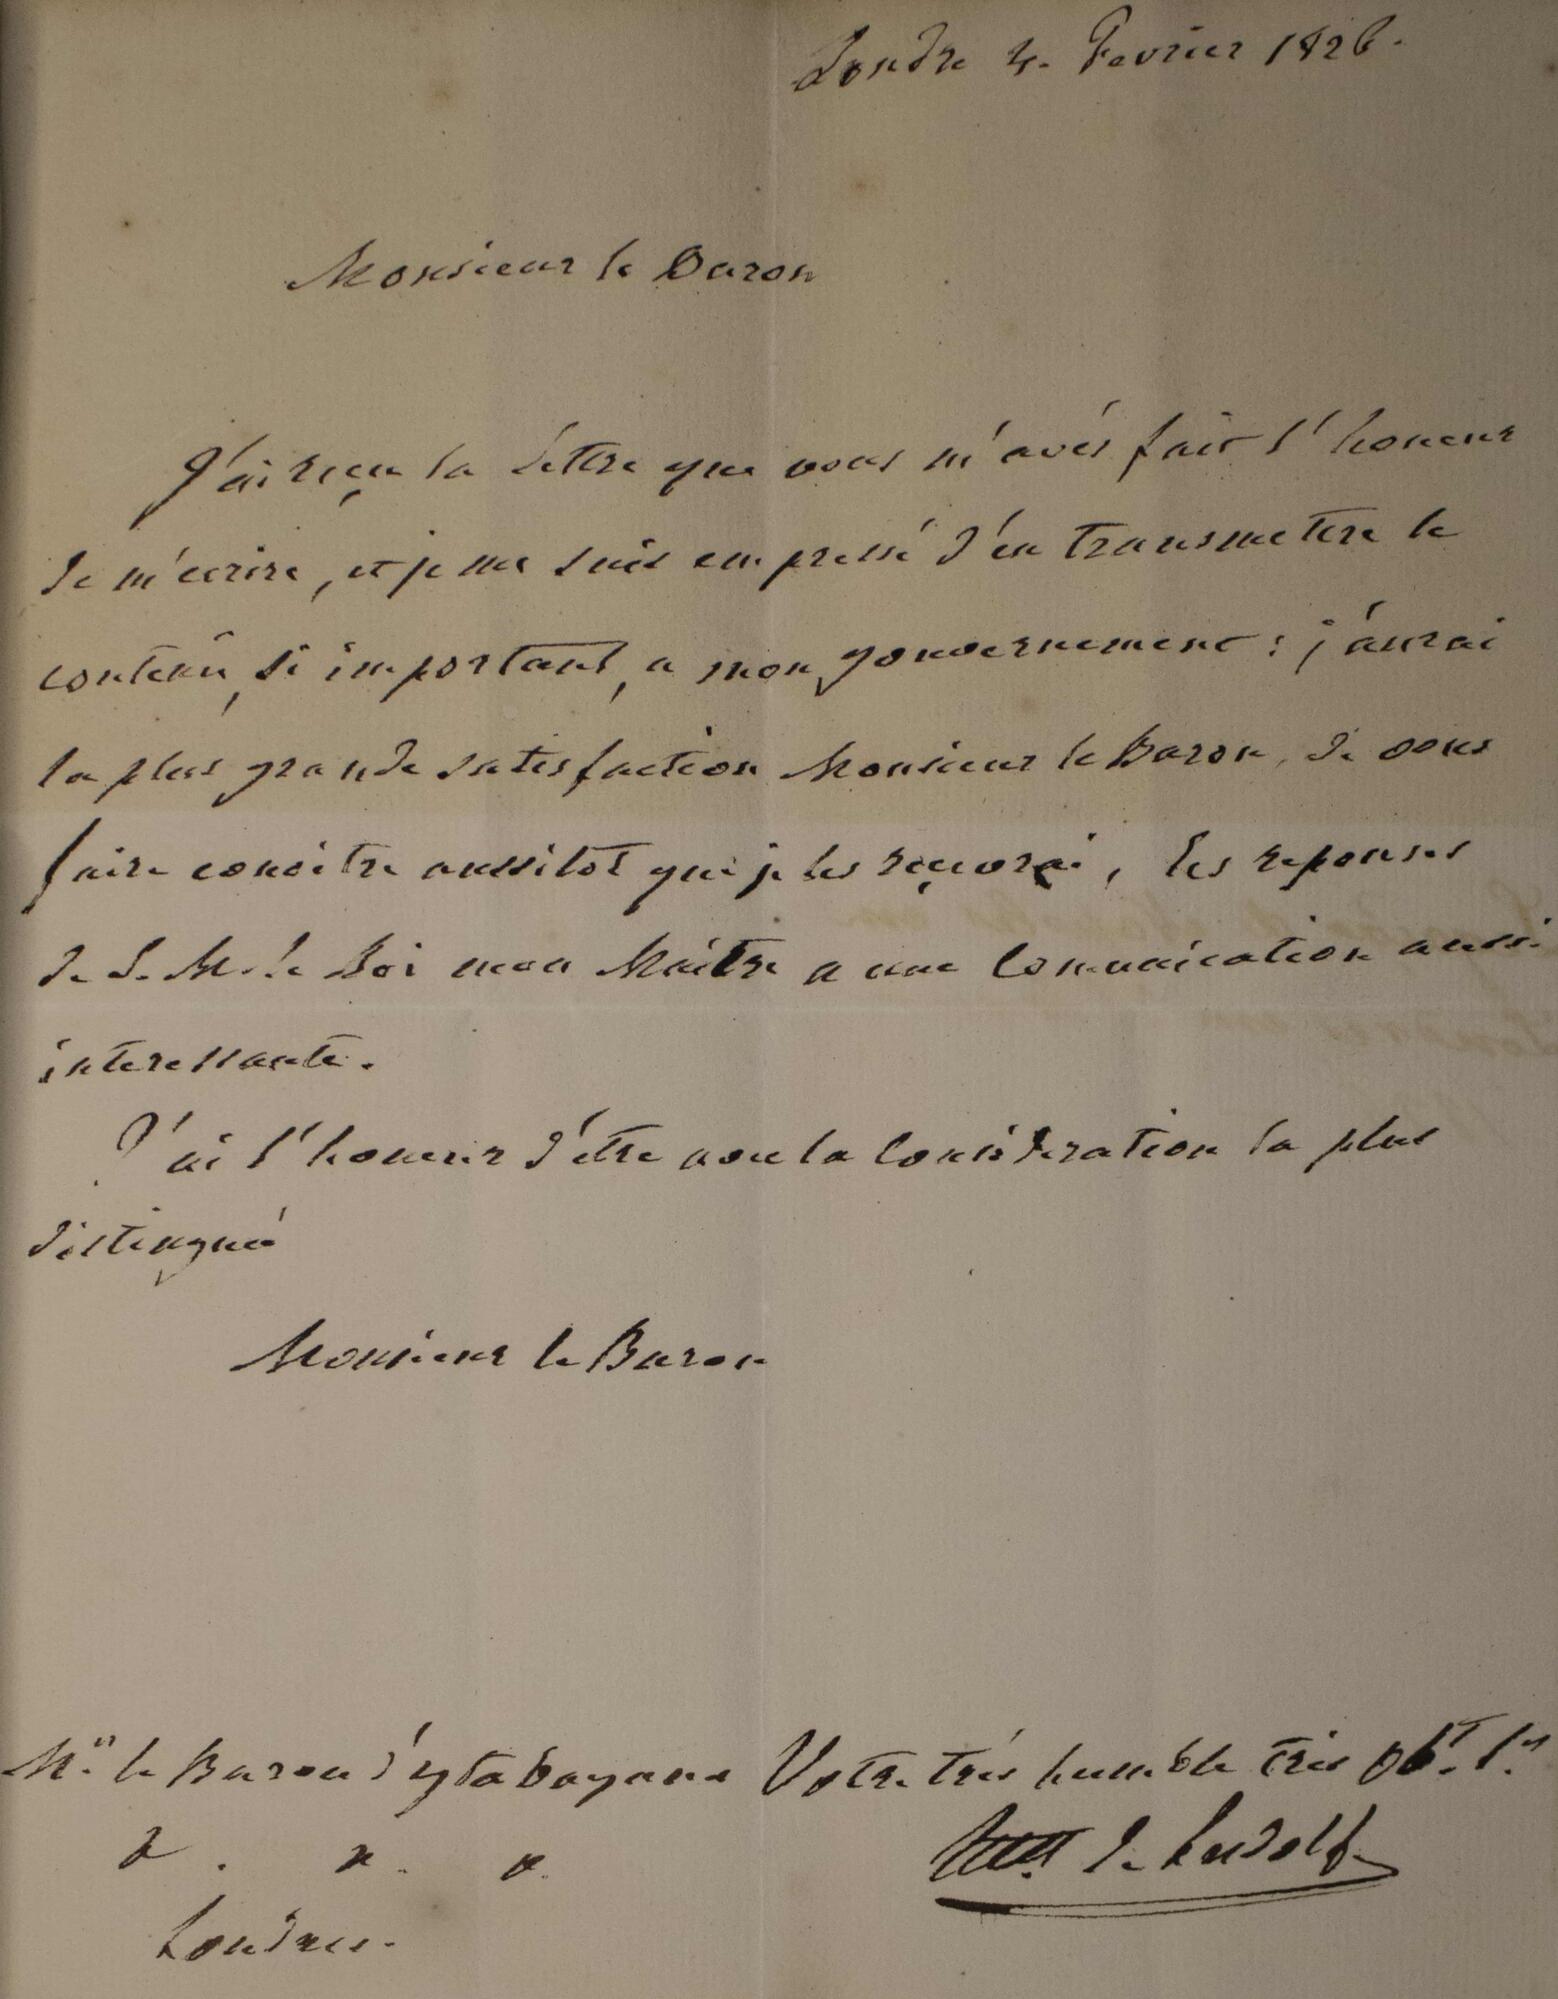 Londre 4. Fevrier 1826.
Monsieur le Baron
J'ai reçu la léttre que vous m'avés fait l'honeur
de m'ecrire, et je me suis empressé d'en transmettre le
contenû, si important, a mon gouvernement: j'aurai
la plus grande satisfaction Monsieur le Baron, de vous
faire conoitre aussitot que je les reçevrai, les reponses
de S. M. le Roi mon Maître a une Comunication aussi
interessante.
J'ai l'honeur d'étre avec la Considération la plus
distingué
Monsieur le Baron
Mr. le Baron d'ytabayana Votre trés humble trés obt. Sr.
&. &. &.
de Ludolf
Londres.